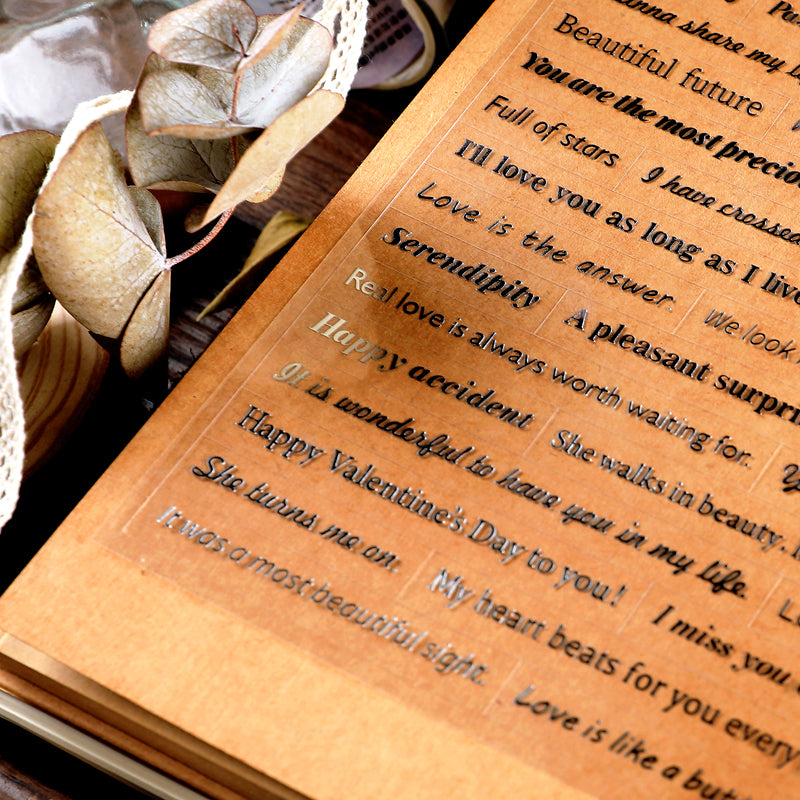 share my
Beautiful future
You are the most
Full of stars I have crossed
I'll love you as long as I live
Love is the answer. We look
Serendipity A pleasant
Real love is always worth waiting for.
Happy accident She walks in beauty.
It is wonderful to have you in my life.
Happy Valentine's Day to you! I miss you
She turns me on. My heart beats for you
It was a most beautiful sight. Love is like a